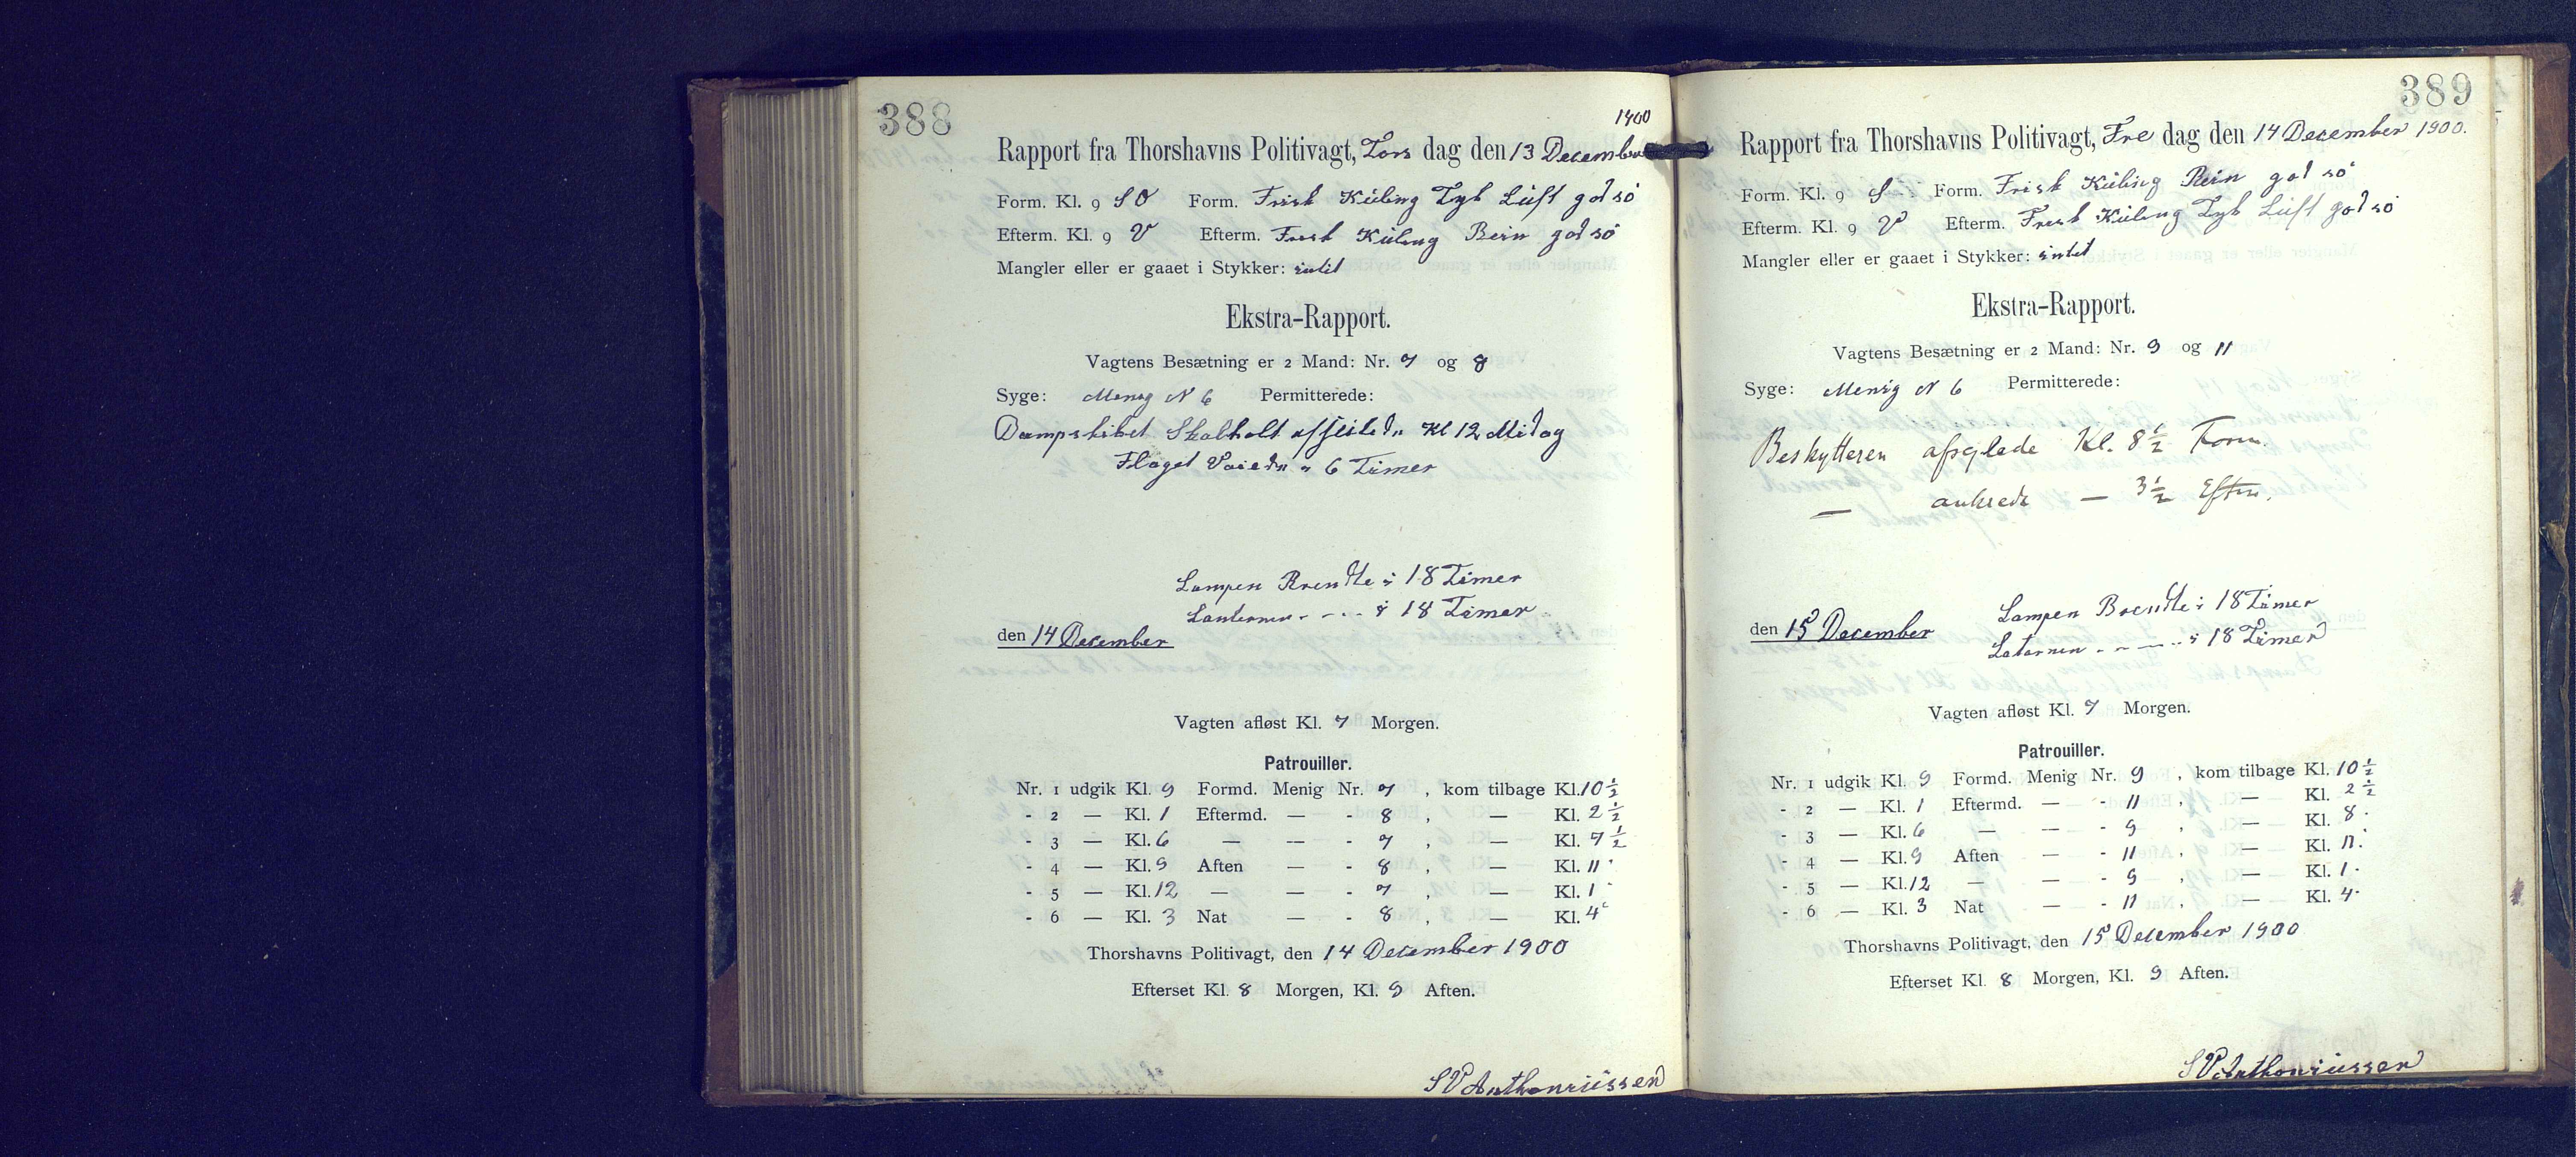 388
1900
Rapport fra Thorshavns Politivagt, Tors dag den 13 December
Form. Kl. 9 SO Form. Frisk Kúling Tyk Lúft god sö
Efterm. Kl. 9 V Efterm. Fresk Kúling Rein god sö
Mangler eller er gaaet i Stykker: intet
Ekstra-Rapport.
Vagtens Besætning er 2 Mand: Nr. 7 og 8
Syge: Menig N 6 Permitterede:
Dampskibet Skalholt Kl 12 Midag
Flaget 6 Timer
Lampen Brendte i 18 Timer
Lanternen - - - i 18 Timer
den 14 December
Vagten afløst Kl. 7 Morgen.
Patrouiller.
Nr. 1 udgik Kl. 9 Formd. Menig Nr. 7 , kom tilbage Kl. 10 1/2
- 2 — Kl. 1 Eftermd. — - 8 , — Kl. 2 1/2
- 3 — Kl. 6 — — - 7 , — Kl. 7 1/2
- 4 — Kl. 9 Aften — - 8 , — Kl. 11
- 5 — Kl. 12 — — - 7 , — Kl. 1
- 6 — Kl. 3 Nat — - 8 , — Kl. 4
Thorshavns Politivagt, den 14 December 1900
Efterset Kl. 8 Morgen, Kl. 9 Aften.
SVAnthoniússen
389
Rapport fra Thorshavns Politivagt, Fre dag den 14 December 1900.
Form. Kl. 9 S Form. Frisk Kúling Rein god sö
Efterm. Kl. 9 V Efterm. Fresk Kúling Tyk Lúft god sö
Mangler eller er gaaet i Stykker: intet
Ekstra-Rapport.
Vagtens Besætning er 2 Mand: Nr. 9 og 11
Syge: Menig N 6 Permitterede:
Beskytteren afsejlede Kl. 8 1/2 Form.
— ankrede — 3 1/2 Eftm.
Lampen Brendte i 18 Timer
Latornen - - — - - i 18 Timer
den 15 December
Vagten afløst Kl. 7 Morgen.
Patrouiller.
Nr. 1 udgik Kl. 9 Formd. Menig Nr. 9 , kom tilbage Kl. 10 1/2
- 2 — Kl. 1 Eftermd. — - 11 , — Kl. 2 1/2
- 3 — Kl. 6 — — - 9 , — Kl. 8
- 4 — Kl. 9 Aften — - 11 , — Kl. 11
- 5 — Kl. 12 — — - 9 , — Kl. 1
- 6 — Kl. 3 Nat — - 11 , — Kl. 4
Thorshavns Politivagt, den 15 December 1900
Efterset Kl. 8 Morgen, Kl. 9 Aften.
SVAnthoniússen